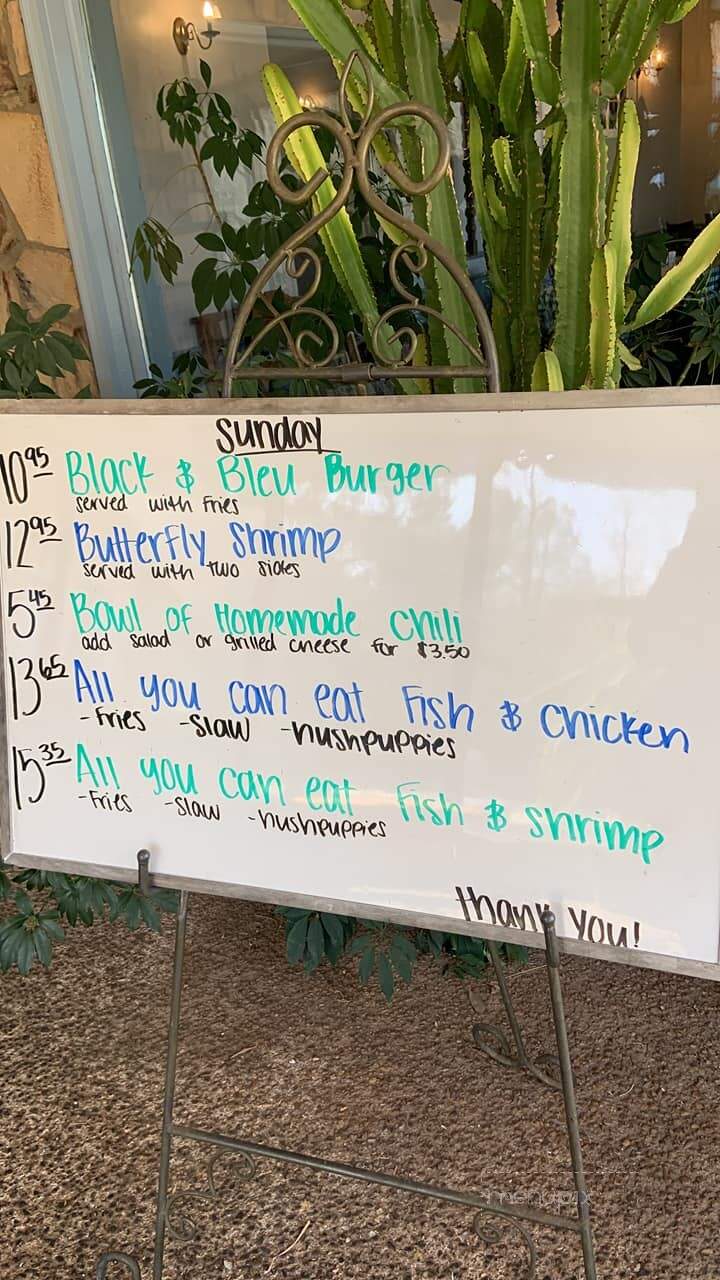 Sunday
10.95 Black & Bleu Burger
served with fries
12.95 Butterfly Shrimp
served with two sides
5.45 Bowl of Homemade Chili
add salad or grilled cheese for $3.50
13.65 All you can eat Fish & Chicken
-Fries -Slaw -hushpuppies
15.35 All you can eat Fish & Shrimp
-Fries -Slaw -hushpuppies
thank you!
menupix